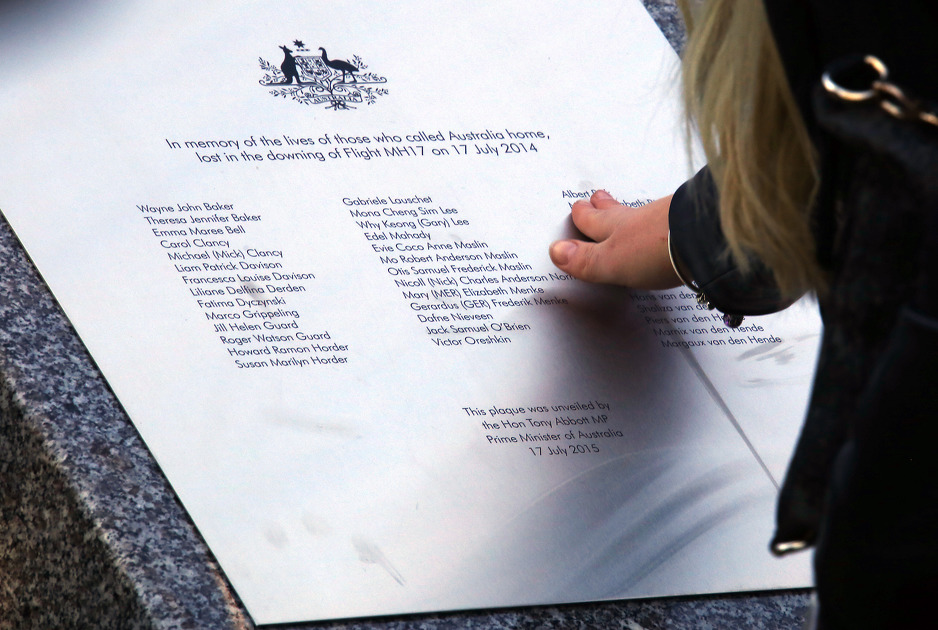 AUSTRALIA
In memory of the lives of those who called Australia home,
lost in the downing of Flight MH17 on 17 July 2014
Wayne John Baker
Theresa Jennifer Baker
Emma Maree Bell
Carol Clancy
Michael (Mick) Clancy
Liam Patrick Davison
Francesca Louise Davison
Liliane Delfina Derden
Fatima Dyczynski
Marco Grippeling
Jill Helen Guard
Roger Watson Guard
Howard Ramon Horder
Susan Marilyn Horder
Gabriele Lauschet
Mona Cheng Sim Lee
Why Keong (Gary) Lee
Edel Mahady
Evie Coco Anne Maslin
Mo Robert Anderson Maslin
Otis Samuel Frederick Maslin
Nicoll (Nick) Charles Anderson Norr
Mary (MER) Elizabeth Menke
Gerardus (GER) Frederik Menke
Dafne Nieveen
Jack Samuel O'Brien
Victor Oreshkin
Albert
Hans van den
Shaliza van de
Piers van den H
Marnix van den Hende
Margaux van den Hende
This plaque was unveiled by
the Hon Tony Abbott MP
Prime Minister of Australia
17 July 2015